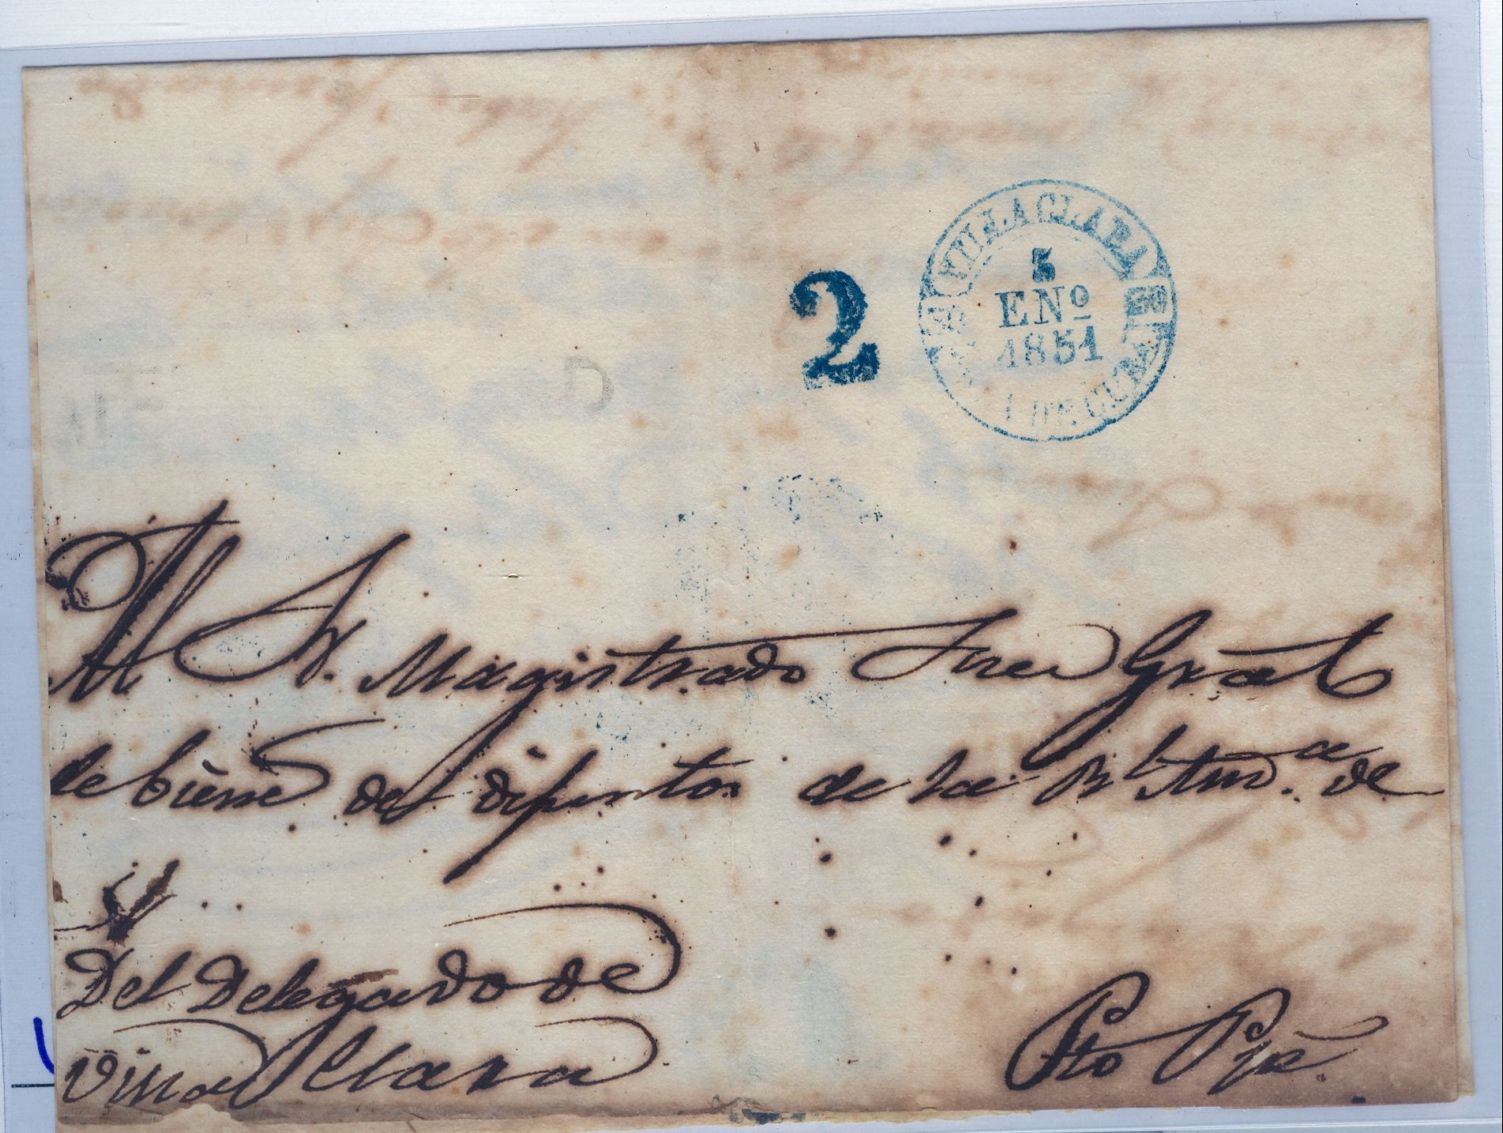 VILLACLARA
5
ENº
1851
2
Al Sr. Magistrado Juez Gral
de bienes de difuntos de la Rl Audª. de
Del Delegado de
Villa Clara
Pto Ppe.